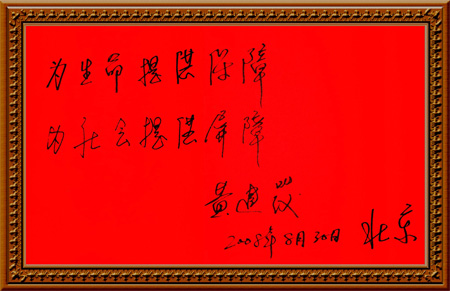 为生命提供保障
为社会提供屏障
黄
2008年8月30日 北京